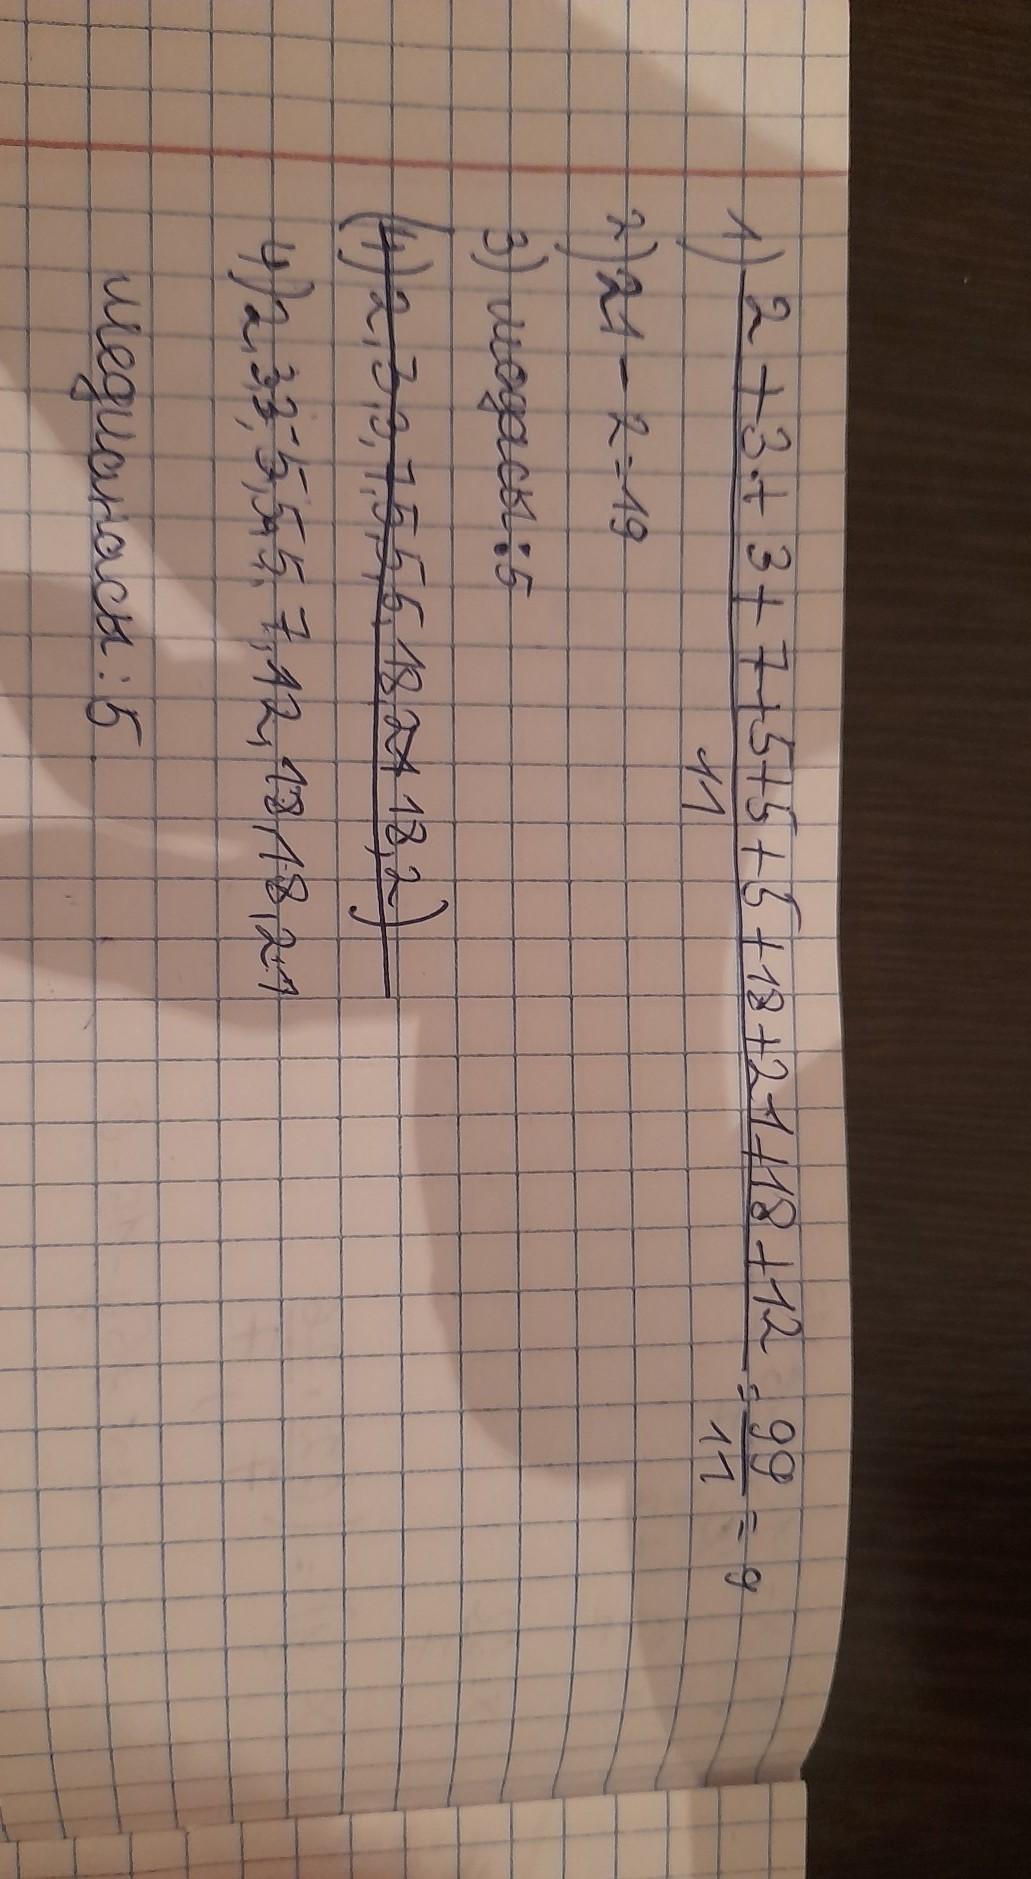 1) 2+3+3+7+5+5+5+18+21+18+12 / 11 = 99/11 = 9
2) 21-2=19
3) модасы: 5
(4) 2, 3, 3, 7, 5, 5, 5, 18, 21 18, 2)
4) 2, 3, 3, 5, 5, 5, 7, 12, 18, 18, 21
медианасы: 5